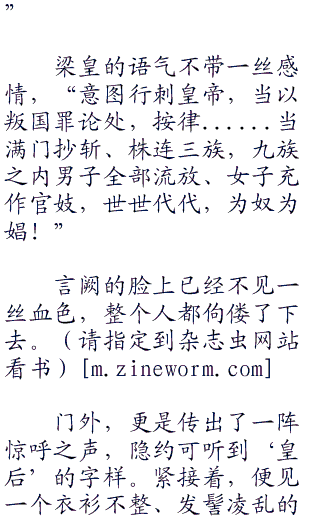 ”
梁皇的语气不带一丝感
情，“意图行刺皇帝，当以
叛国罪论处，按律......当
满门抄斩、株连三族，九族
之内男子全部流放、女子充
作官妓，世世代代，为奴为
娼！”
言阙的脸上已经不见一
丝血色，整个人都佝偻了下
去。（请指定到杂志虫网站
看书）[m.zineworm.com]
门外，更是传出了一阵
惊呼之声，隐约可听到‘皇
后’的字样。紧接着，便见
一个衣衫不整、发髻凌乱的